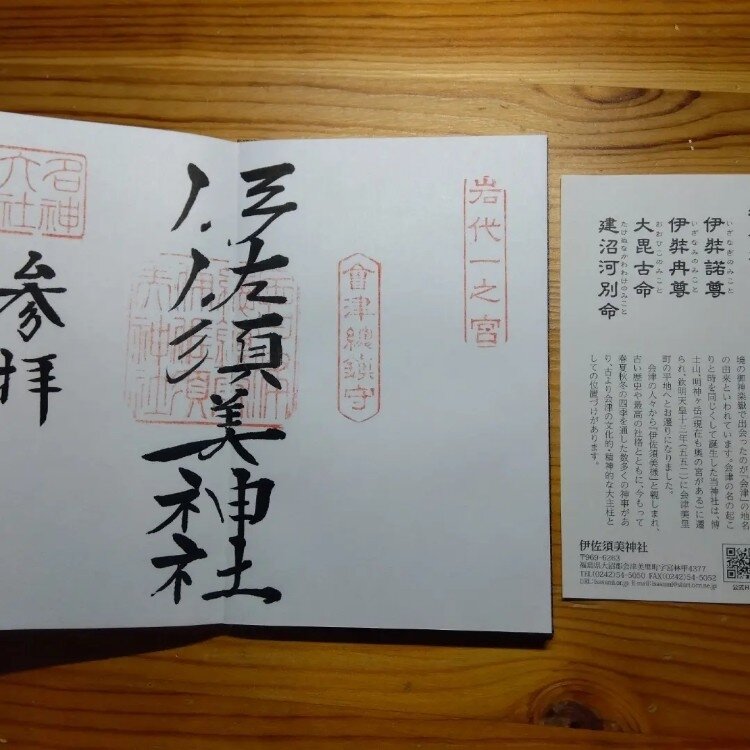 岩代一之宮
會津總鎮守
伊佐須美神社
名神大社
参拝
いざなぎのみこと
伊弉諾尊
いざなみのみこと
伊弉冉尊
おおひこのみこと
大毘古命
たけぬなかわわけのみこと
建沼河別命
境の御神楽嶽で出会ったのが「会津」の地名
の由来といわれています。会津の名の起こ
りと時を同じくして誕生した当神社は、博
士山、明神ヶ岳(現在も奥の宮がある)に遷
られ、欽明天皇十三年(五五二)に会津美里
町の平地へとお遷りになりました。
会津の人々から「伊佐須美様」と親しまれ、
古い歴史や最高の社格とともに、今もって
春夏秋冬の四季を通した数多くの神事があ
り、古より会津の文化的・精神的な大主柱と
しての位置づけがあります。
伊佐須美神社
〒969-6263
福島県大沼郡会津美里町字宮林甲4377
TEL(0242)54-5050 FAX(0242)54-5052
公式H